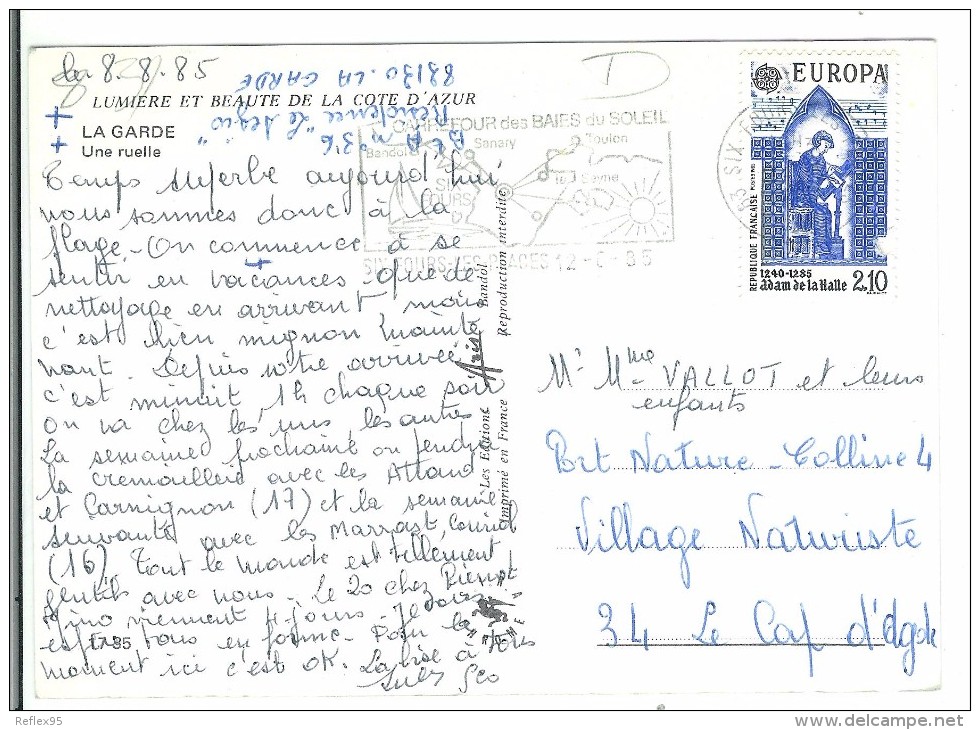 le 8.8.85
83130. LA GARDE
Résidence "Le
BEA n° 36
LUMIERE ET BEAUTE DE LA COTE D'AZUR
LA GARDE
Une ruelle
Temps superbe aujourd'hui
nous sommes donc à la
plage - On commence à se
sentir en vacances - que de
nettoyage en arrivant, mais
c'est bien mignon mainte
nant. Depuis notre arrivée
c'est minuit, 1h chaque soir
on va chez les uns les autres
La semaine prochaine on
la avec les
et (17) et la semaine
suivante avec les
(16) Tout le monde est tellement
gentils avec nous. Le 20 chez
viennent 4 jours. J'
vous en forme. Pour le
moment ici c'est OK. La bise à tous
Geo
17-85
Les Editions Aris Bandol
Imprimé en France Reproduction interdite
CARREFOUR des BAIES du SOLEIL
Bandol Sanary Toulon
la Seyne
SIX
FOURS
SIX-FOURS-LES-PLAGES 12-8-85
EUROPA
REPUBLIQUE FRANÇAISE POSTES
1240-1285
Adam de la Halle 2,10
Mr Mme VALLOT et leurs
enfants
Port Nature - Colline 4
Village Naturiste
34 Le Cap d'Agde
Reflex95
delcampe.net